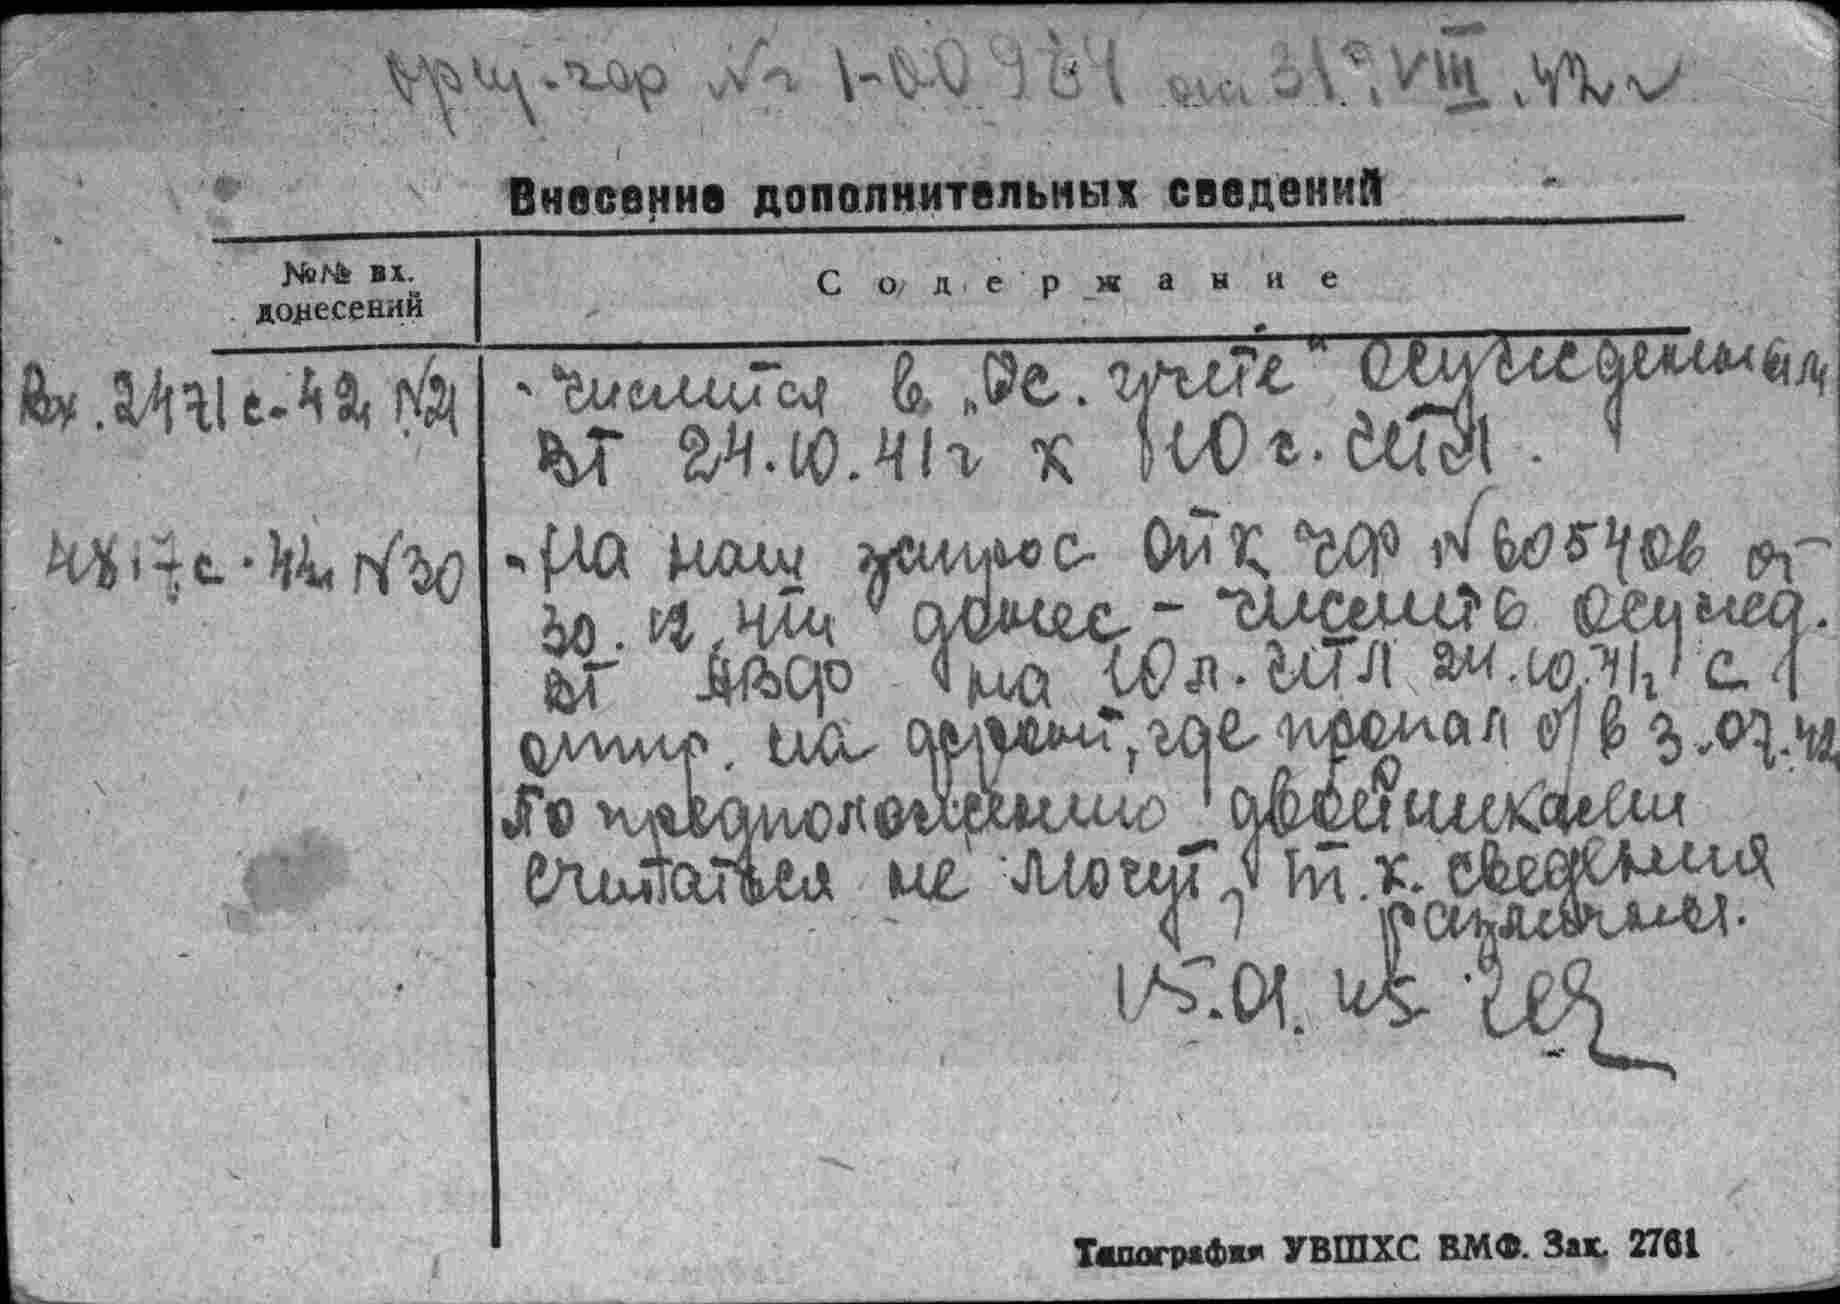 чф № 1-00984 от 31.VIII.42 г
Внесение дополнительных сведений
№№ вх. донесений
Содержание
Вх. 2471 с-42г №21
- числится в „Ос. учете" осужденным
ВТ 24.10.41 г к 10 г. ИТЛ.
4817 с-44г №30
- На наш запрос ОПК ЧФ №605406 от
30.12.44г донес - числить осужд.
ВТ АВФ на 10 л. ИТЛ 24.10.41г с
отпр. на фронт, где пропал б/в 3.07.42
По предположению двойниками
считаться не могут, т.к. сведения
различные.
15.01.45
Типография УВШХС ВМФ. Зак. 2761